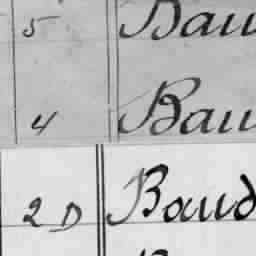 5 Bau
4 Bau
2 D Baud